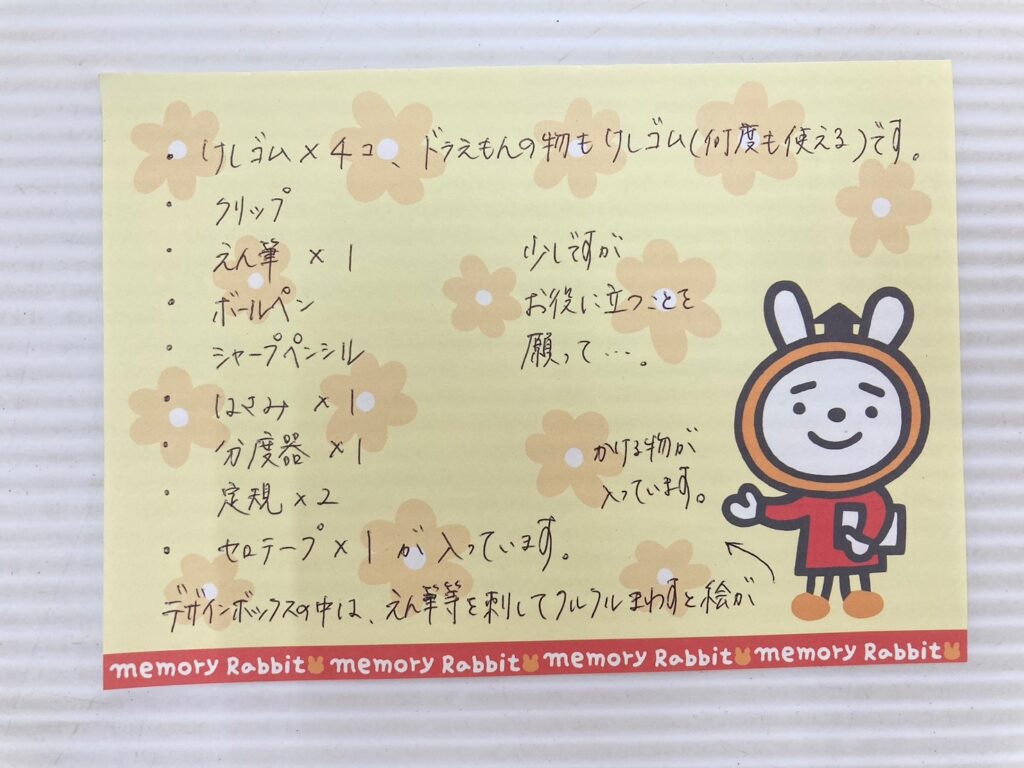 ・けしゴム×4コ、ドラえもんの物もけしゴム(何度も使える)です。
・クリップ
・えん筆×1
・ボールペン
・シャープペンシル
・はさみ×1
・分度器×1
・定規×2
・セロテープ×1が入っています。
少しですが
お役に立つことを
願って…。
デザインボックスの中は、えん筆等を刺してクルクルまわすと絵が
かける物が
入っています。
memory Rabbit memory Rabbit memory Rabbit memory Rabbit